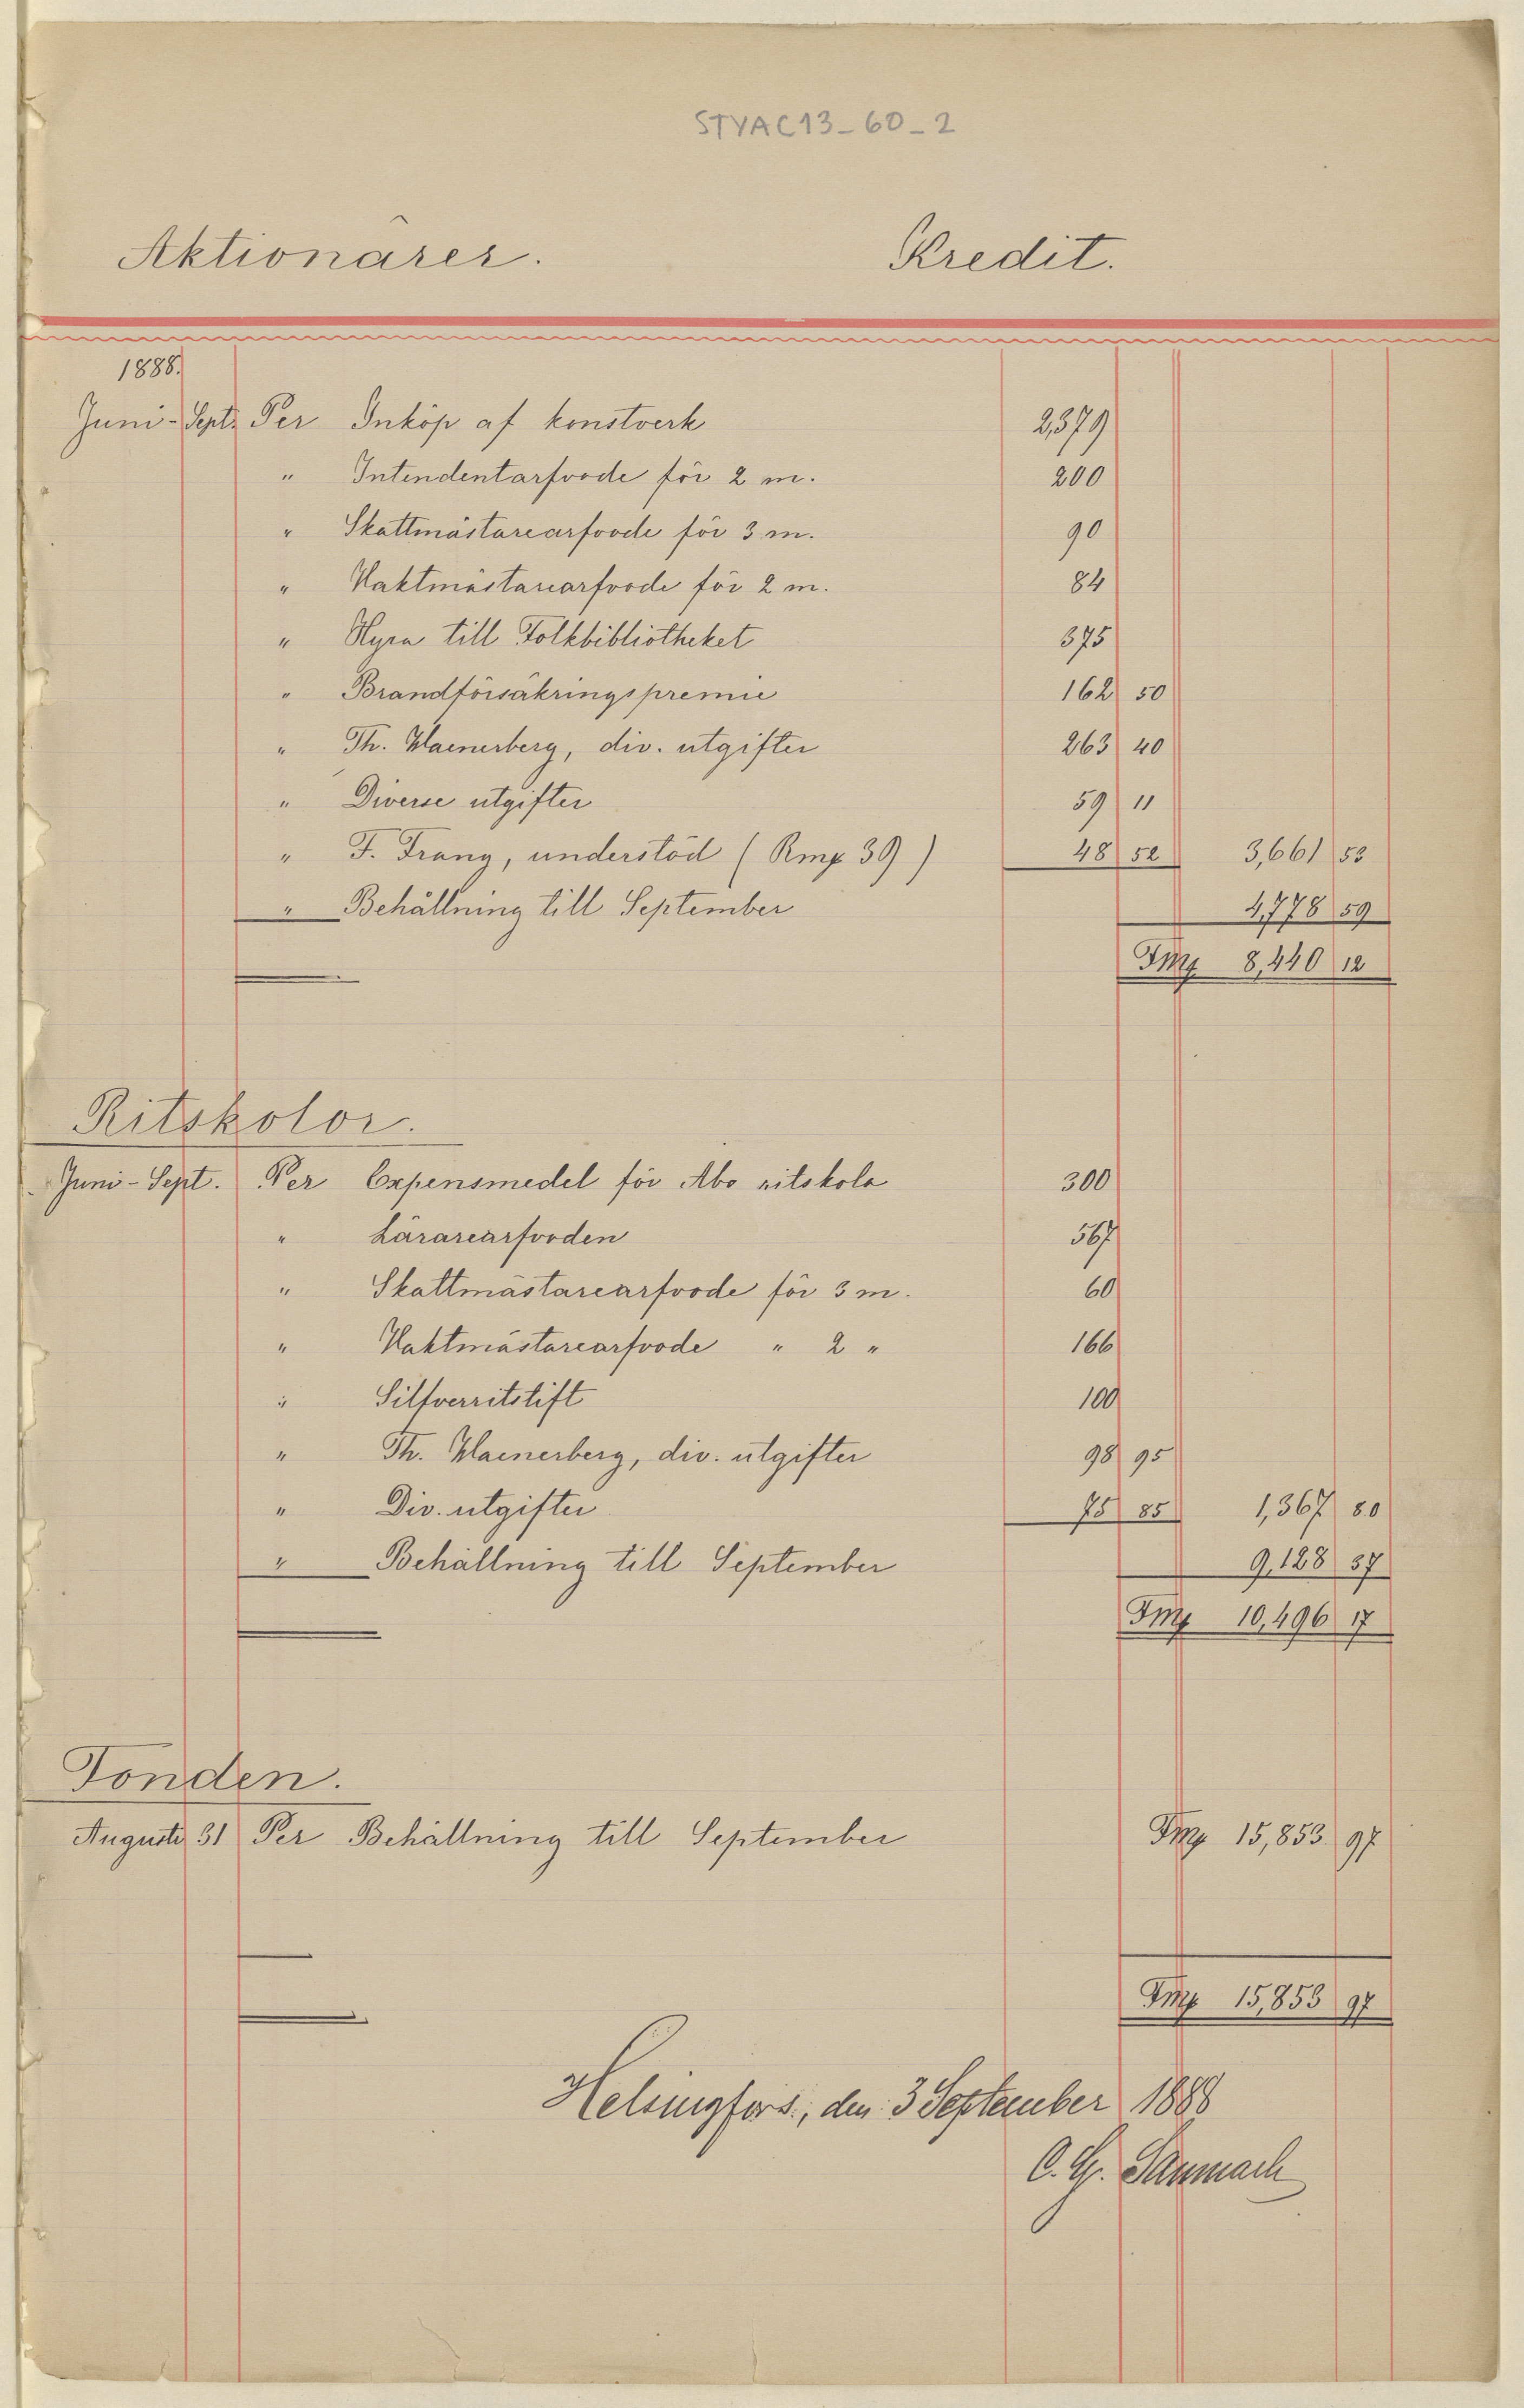 STYAC13-60-2
Aktionärer. Kredit.
1888.
Juni-Septr Per Inköp af konstverk 2,379
" Intendentarfvode för 2 m. 200
" Skattmästarearfvode för 3 m. 90
" Vaktmästarearfvode för 2 m. 84
" Hyra till Folkbibliotheket 375
" Brandförsäkringspremie 162 50
" Th. Waenerberg, div. utgifter 263 40
" Diverse utgifter 59 11
" F. Frang, understöd (Rmk 39) 48 52 3,661 53
" Behållning till September 4,778 59
Fmk 8,440 12
Ritskolor.
Juni-Sept. Per Expensmedel för Åbo ritskola 300
" Lärarearfvoden 567
" Skattmästarearfvode för 3 m. 60
" Vaktmästarearfvode " 2 " 166
" Silfverritstift 100
" Th. Waenerberg, div. utgifter 98 95
" Div. utgifter 75 85 1,367 80
" Behållning till September 9,128 37
Fmk 10,496 17
Fonden.
Augusti 31 Per Behållning till September Fmk 15,853 97
Fmk 15,853 97
Helsingfors, den 3 September 1888
C. G. Sanmark